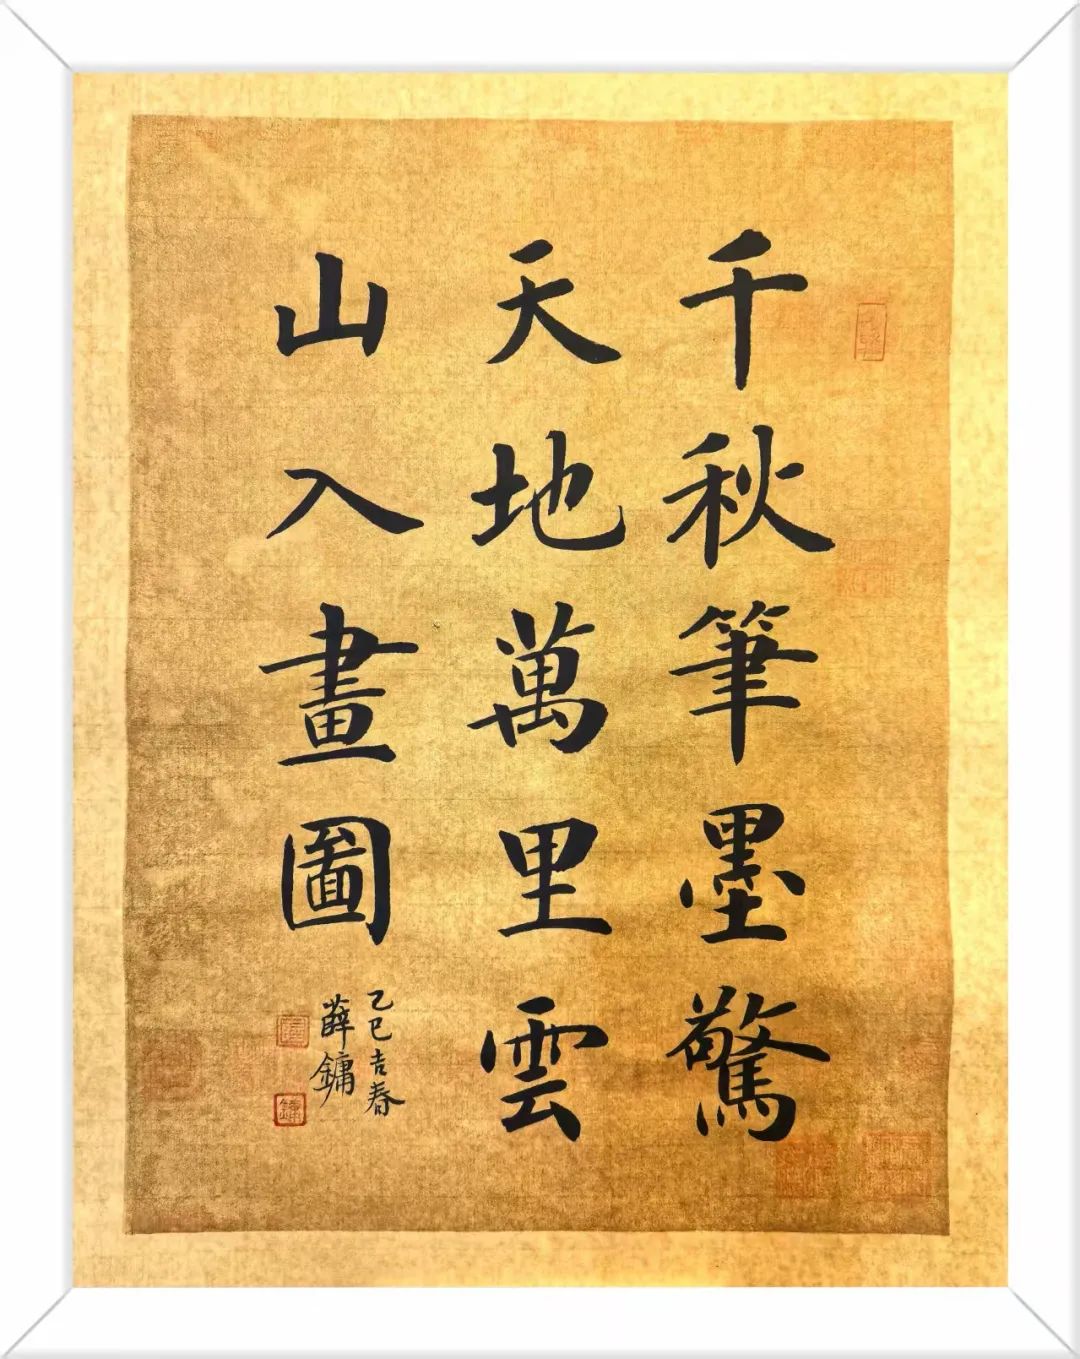 千秋筆墨驚
天地萬里雲
山入畫圖
乙巳吉春
薛鏞